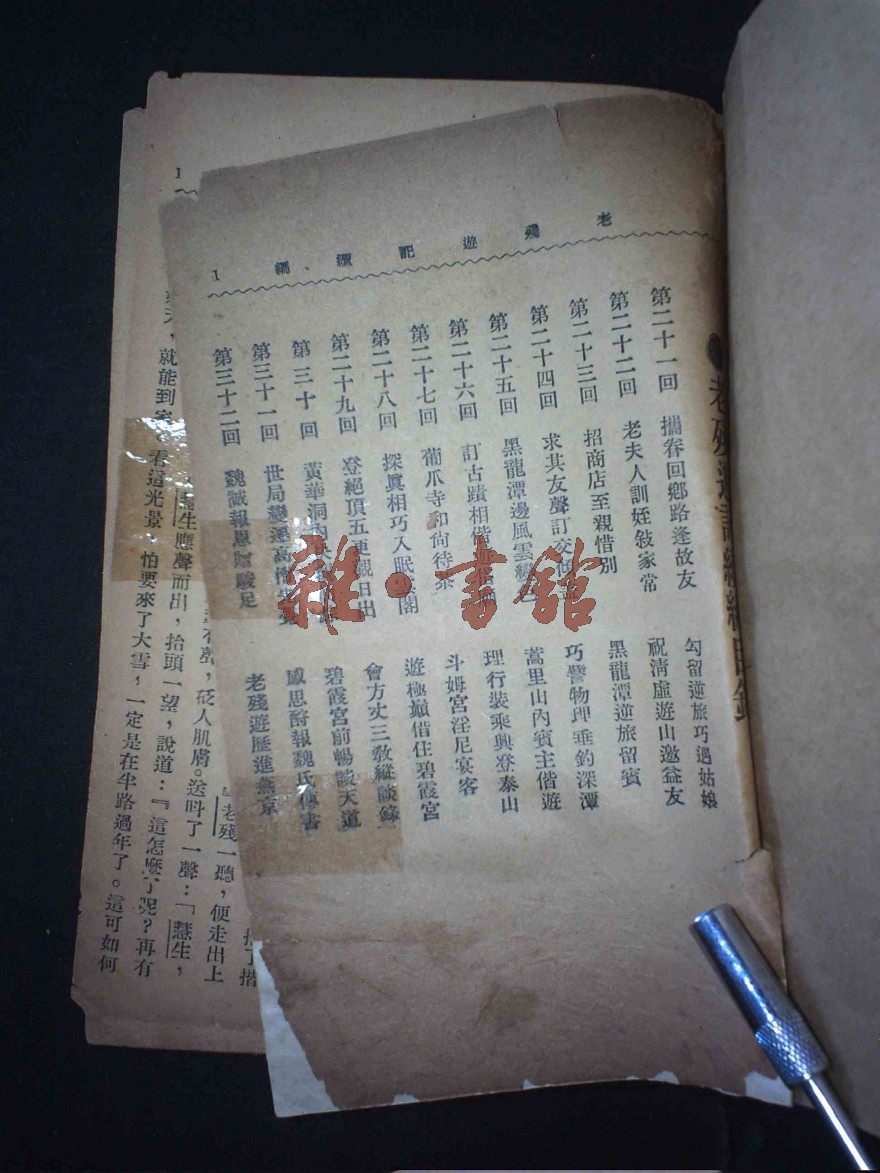 老殘遊記續編 1
老殘遊記續編目錄
第二十一回 攜眷回鄉路逢故友 勾留逆旅巧遇姑娘
第二十二回 老夫人訓姪敍家常 祝清虛遊山邀益友
第二十三回 招商店至親惜別 黑龍潭逆旅留賓
第二十四回 求其友聲訂交 巧譬物理垂釣深潭
第二十五回 黑龍潭邊風雲變色 蒿里山內賓主偕遊
第二十六回 訂古蹟相偕遊 理行裝乘興登泰山
第二十七回 葡爪寺和尙待茶 斗姆宮淫尼宴客
第二十八回 探眞相巧入眠雲閣 遊極巔借住碧霞宮
第二十九回 登絕頂五更觀日出 會方丈三敎縱談錄
第三十回 黃華洞 碧霞宮前暢談天道
第三十一回 世局變遷高 感思酧報魏氏傳書
第三十二回 魏諴報恩贈駿足 老殘遊歷進燕京
雜·書館
1
老殘一聽，便走出上
砭人肌膚。送呌了一聲：『慧生，
慧生應聲而出，抬頭一望，說道：『這怎麽了呢？再有
天，就能到家。看這光景，怕要來了大雪，一定是在半路過年了。這可如何